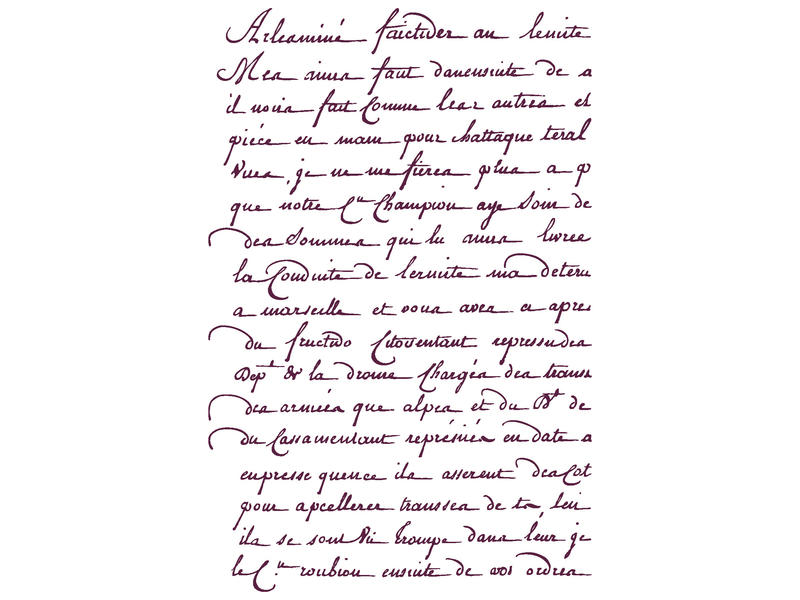 Arleaminé faictder au lemite
Mea aima faut danensuite de a
il noira faut Comme lear autrea et
piéce en mam pour chattaque teral
Vuea, je ne me fierea plua a p
que notre C.en Champion aye Soin de
dea Sommea qui lu aima livree
la Conduite de lermite ma deteru
a marseille et voua avea ce apres
du fructido Citoventant repressudea
Dep.t & la drome Chargéa dea transa
dea arméea que alpea et du B.t de
du Cassamentaut représiéea en date a
enpresse quence ila asserent deaCot
pour apcellerer transsea de ta, leu
ila se sont Vii trompe dana leur je
le C.en roubion ensuite de vos ordrea